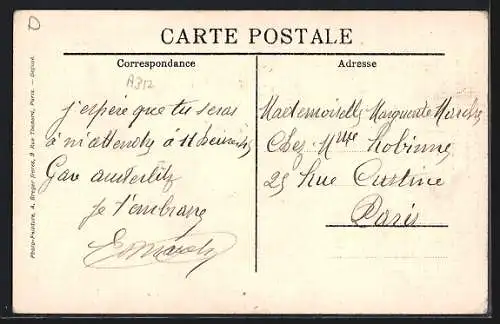 D
CARTE POSTALE
Correspondance
A312
j'espère que tu seras
à m'attendre à 11 heures
Gare austerlitz
Je t'embrasse
Adresse
Mademoiselle Marguerite
Chez Mme Robinne
25 Rue Custine
Paris
Photo-Peinture, A. Breger Frères, 9 Rue Thénard, Paris. —